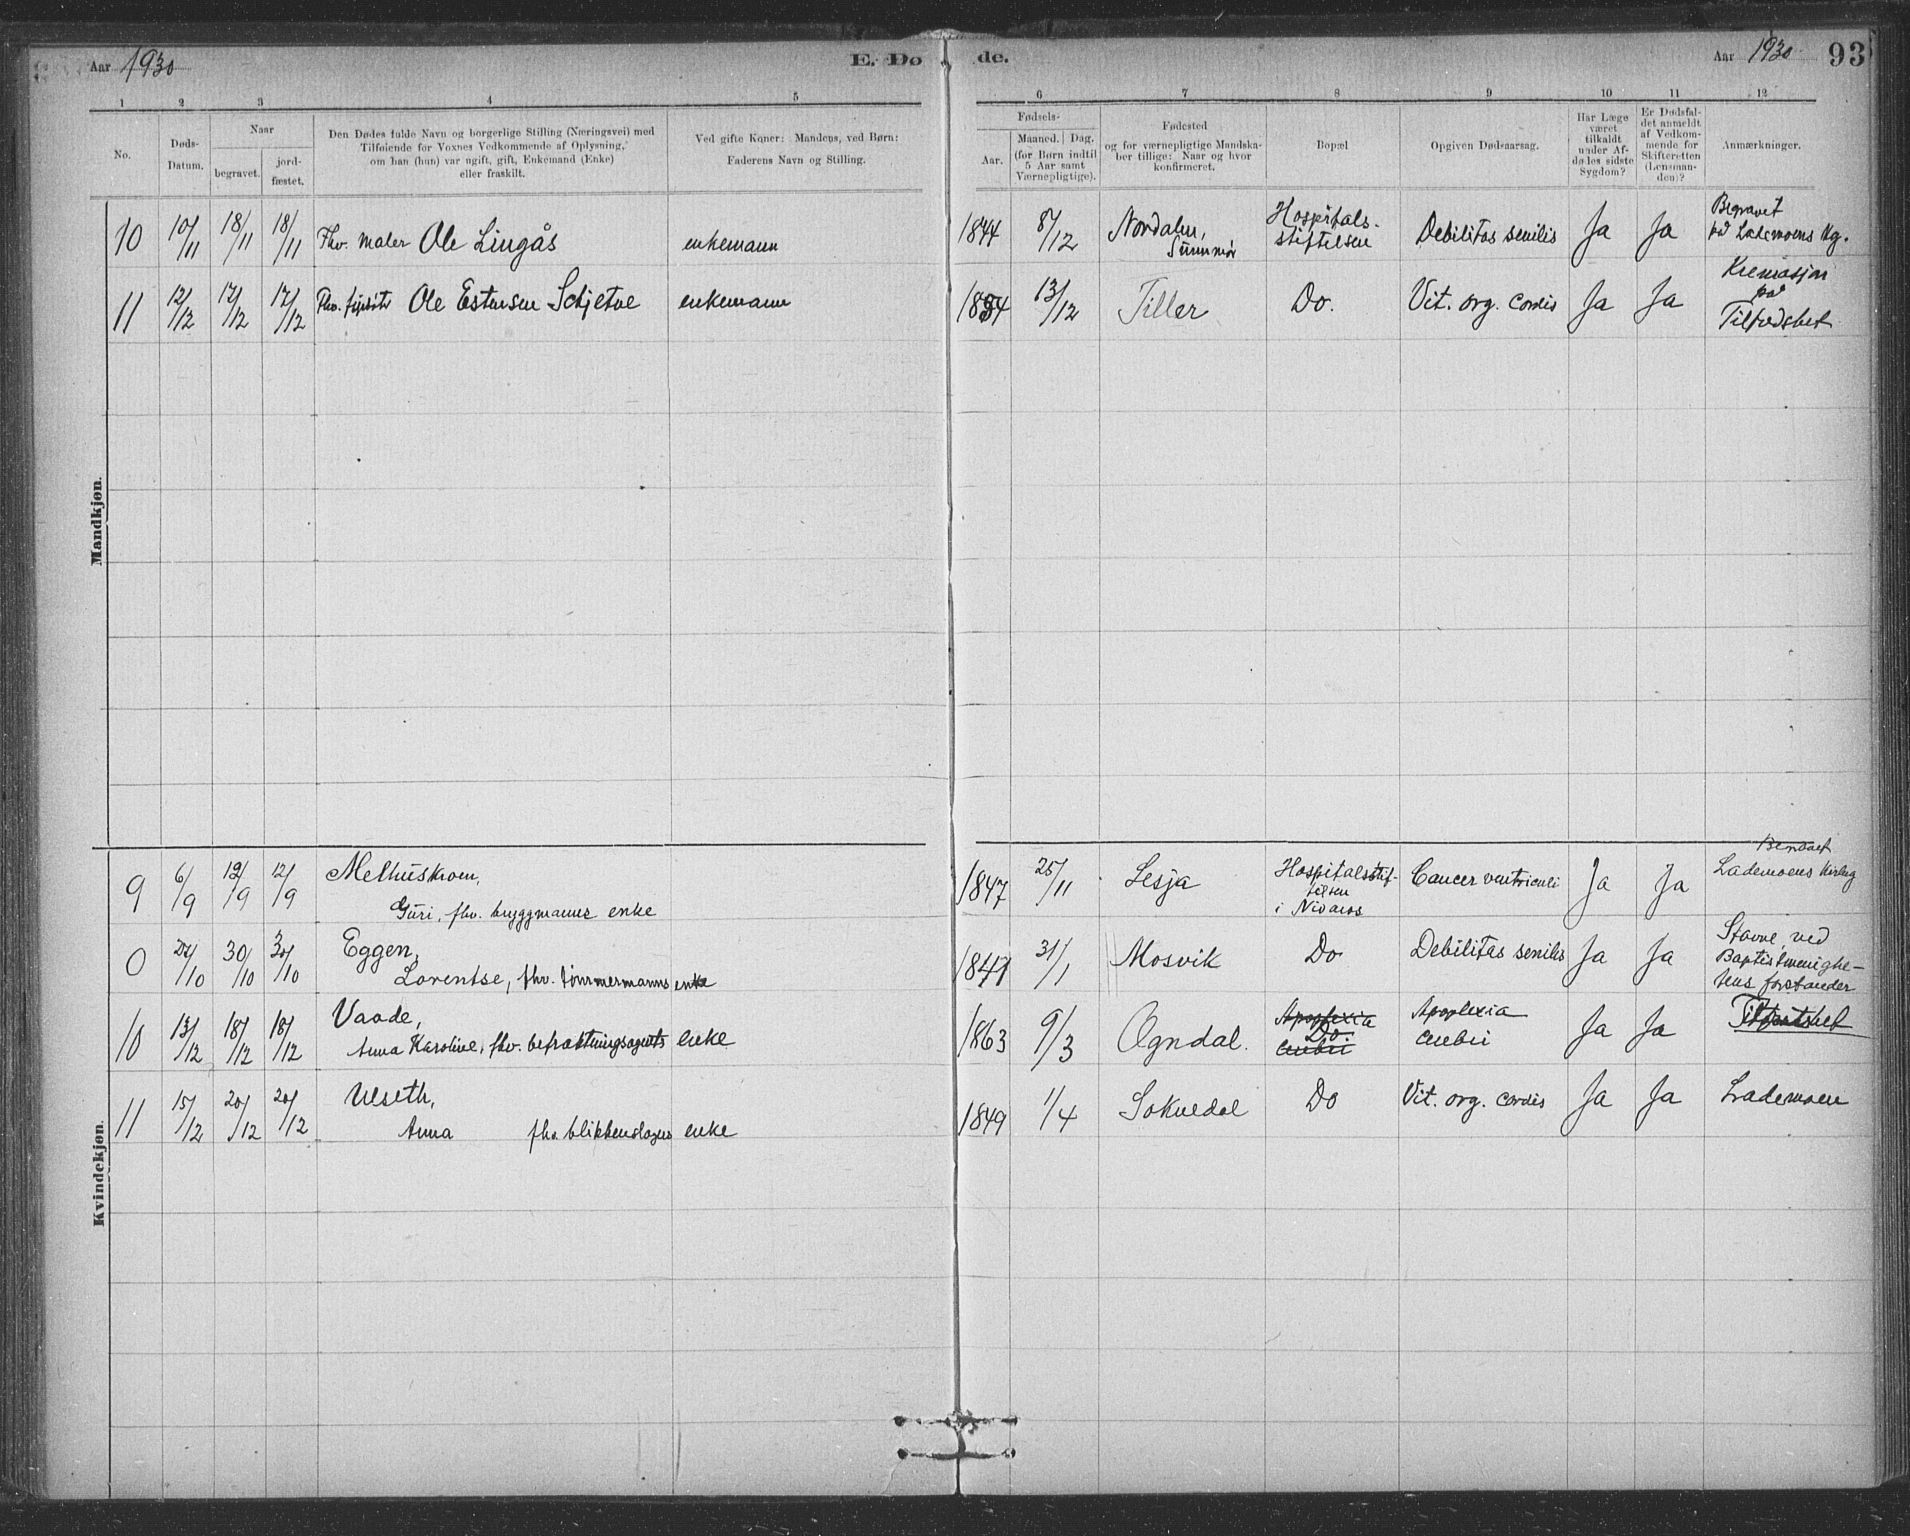 Aar 1930
E. Døde.
Aar 1930
93
1 2 3 4 5 6 7 8 9 10 11 12
No.
Døds-
Datum.
Naar
begravet.
jord-
fæstet.
Den Dødes fulde Navn og borgerlige Stilling (Næringsvei) med
Tilføiende for Voxnes Vedkommende af Oplysning,
om han (hun) var ugift, gift, Enkemand (Enke)
eller fraskilt.
Ved gifte Koner: Mandens, ved Børn:
Faderens Navn og Stilling.
Fødsels-
Aar.
Maaned. Dag.
(for Børn indtil
5 Aar samt
Værnepligtige).
Fødested
og for værnepligtige Mandska-
ber tillige: Naar og hvor
konfirmeret.
Bopæl
Opgiven Dødsaarsag.
Har Læge
været
tilkaldt
under Af-
dødes sidste
Sygdom?
Er Dødsfal-
det anmeldt
af Vedkom-
mende for
Skifteretten
(Lensman-
den)?
Anmærkninger.
Mandkjøn.
10 10/11 18/11 18/11 Fhv. maler Ole Lingås enkemann 1844 8/12 Nordalen, Sunnmør Hospitals-
stiftelsen Debilitas senilis Ja Ja Begravet
ved Lademoens Kg.
11 12/12 17/12 17/12 Fhv. Ole Estensen Schjetve enkemann 1854 13/12 Tiller Do. Vit. org. cordis Ja Ja Kremasjon
på
Tilfredshet
Kvindekjøn.
9 6/9 12/9 12/9 Melhuskroen,
Guri, fhv. bryggmanns enke 1847 25/11 Lesja Hospitalsstif-
telsen
i Nidaros Cancer ventriculi Ja Ja Begravet
Lademoens Kirkeg
0 24/10 30/10 30/10 Eggen,
Lorentse, fhv. tømmermanns enke 1841 31/1 Mosvik Do Debilitas senilis Ja Ja Stavne, ved
Baptistmenighe-
tens forstander
10 13/12 18/12 18/12 Vaade,
Anna Karoline, fhv. befraktningsagents enke 1863 9/3 Ogndal. Apoplexia
Do.
cerebri Apoplexia
cerebri Ja Ja Tilfredshet
11 15/12 20/12 20/12 Ulseth,
Anna fhv. blikkenslagers enke 1849 1/4 Soknedal Do Vit. org. cordis Ja Ja Lademoen